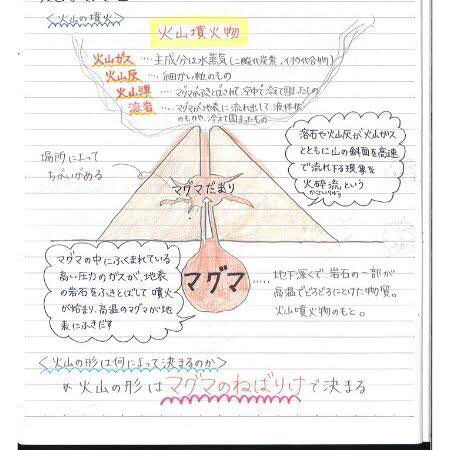 <火山の噴火>
火山噴火物
火山ガス … 主成分は水蒸気(二酸化炭素、イオウ化合物)
火山灰 … 細かい粒のもの
火山弾 … マグマがふきとばされ、空中で冷えて固まったもの
溶岩 … マグマが地表に流れ出して、液体状
のものや、冷えて固まったもの
場所によって
ちがいがある
マグマだまり
溶石や火山灰が火山ガス
とともに山の斜面を高速
で流れ下る現象を
火砕流という
かさいりゅう
マグマの中にふくまれている
高い圧力のガスが、地表
の岩石をふきとばして噴火
が始まり、高温のマグマが地
表にふきだす
マグマ
…… 地下深くで、岩石の一部が
高温でどろどろにとけた物質。
火山噴火物のもと。
<火山の形は何によって決まるのか>
火山の形はマグマのねばりけで決まる